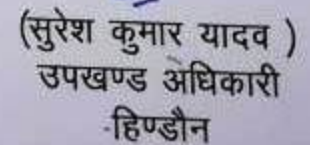 (सुरेश कुमार यादव )
उपखण्ड अधिकारी
हिण्डौन